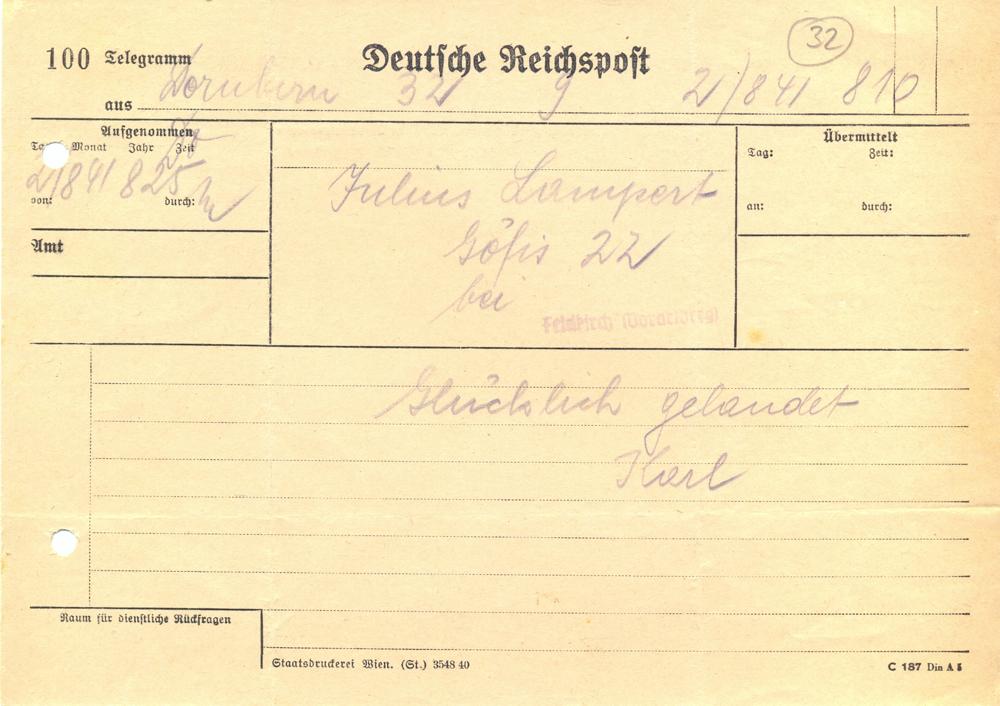 32
100 Telegramm Deutsche Reichspost
aus Dornbirn 32 9 2/841 810
Aufgenommen
Tag Monat Jahr Zeit
2/841 825
von: durch:
Amt
Julius Lampert
Göfis 22
bei
Feldkirch (Vorarlberg)
Übermittelt
Tag: Zeit:
an: durch:
Glücklich gelandet
Karl
Raum für dienstliche Rückfragen
Staatsdruckerei Wien. (St.) 3548 40
C 187 Din A 5